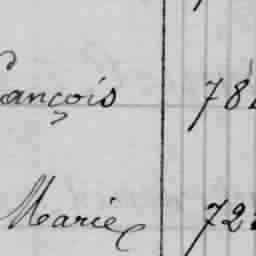 ançois 78
Marie 72